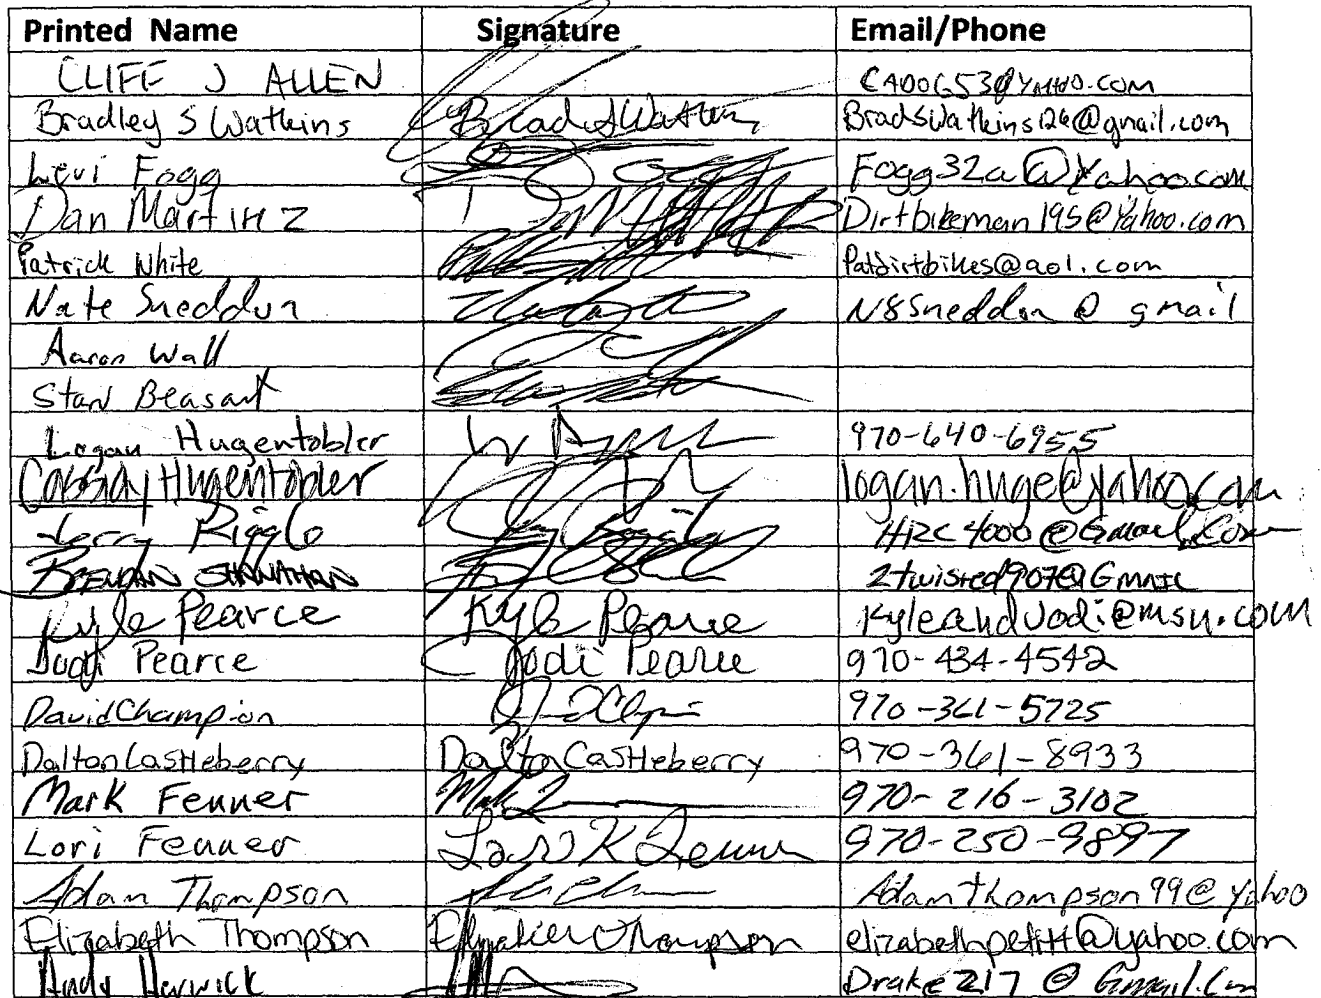 Printed Name Signature Email/Phone
CLIFF J ALLEN CA00653@YAHOO.COM
Bradley S Watkins Brad S Watkins BradSWatkins126@gmail.com
Levi Fogg Fogg32a@Yahoo.com
Dan Martinez Dirtbikeman195@Yahoo.com
Patrick White Patdirtbikes@aol.com
Nate Sneddon N8Sneddon @ gmail
Aaron Wall
Stan Beasant
Logan Hugentobler 970-640-6955
Cassady Hugentobler logan.huge@yahoo.com
Jerry Riggle HRC4000@Gmail.Com
BRENDAN 2twisted907@Gmail
Kyle Pearce Kyle Pearce KyleandJodi@msn.com
Jodi Pearce Jodi Pearce 970-434-4542
David Champion 970-361-5725
Dalton Castleberry Dalton Castleberry 970-361-8933
Mark Fenner 970-216-3102
Lori Fenner Lori K Fenner 970-250-9897
Adam Thompson Adamthompson99@yahoo
Elizabeth Thompson Elizabeth Thompson elizabethpetitt@yahoo.com
Andy Harwick Drake217@Gmail.Com